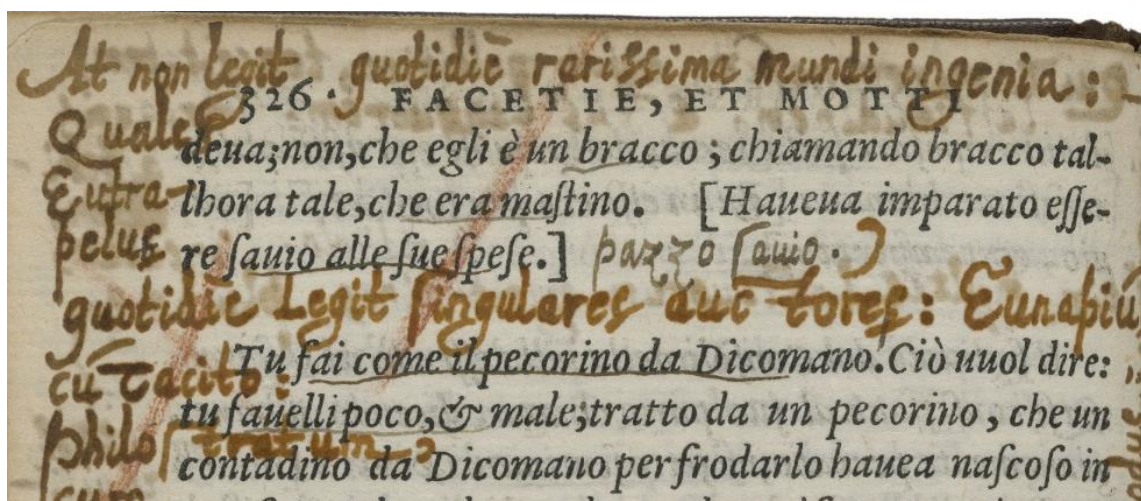 At non legit quotidiē rarissima mundi ingenia:
326. FACETIE, ET MOTTI
Quales
deua;non,che egli è un bracco; chiamando bracco tal-
Eutra-
lhora tale,che era maſtino. [Haueua imparato eſſe-
pelus
re ſauio alle ſue ſpeſe.] pazzo ſauio.
quotidie Legit ſingulares auctores: Eunapiū
Tu fai come il pecorino da Dicomano. Ciò uuol dire:
cū Tacito:
tu fauelli poco,& male;tratto da un pecorino, che un
Philoſtratum
contadino da Dicomano per frodarlo hauea naſcoſo in